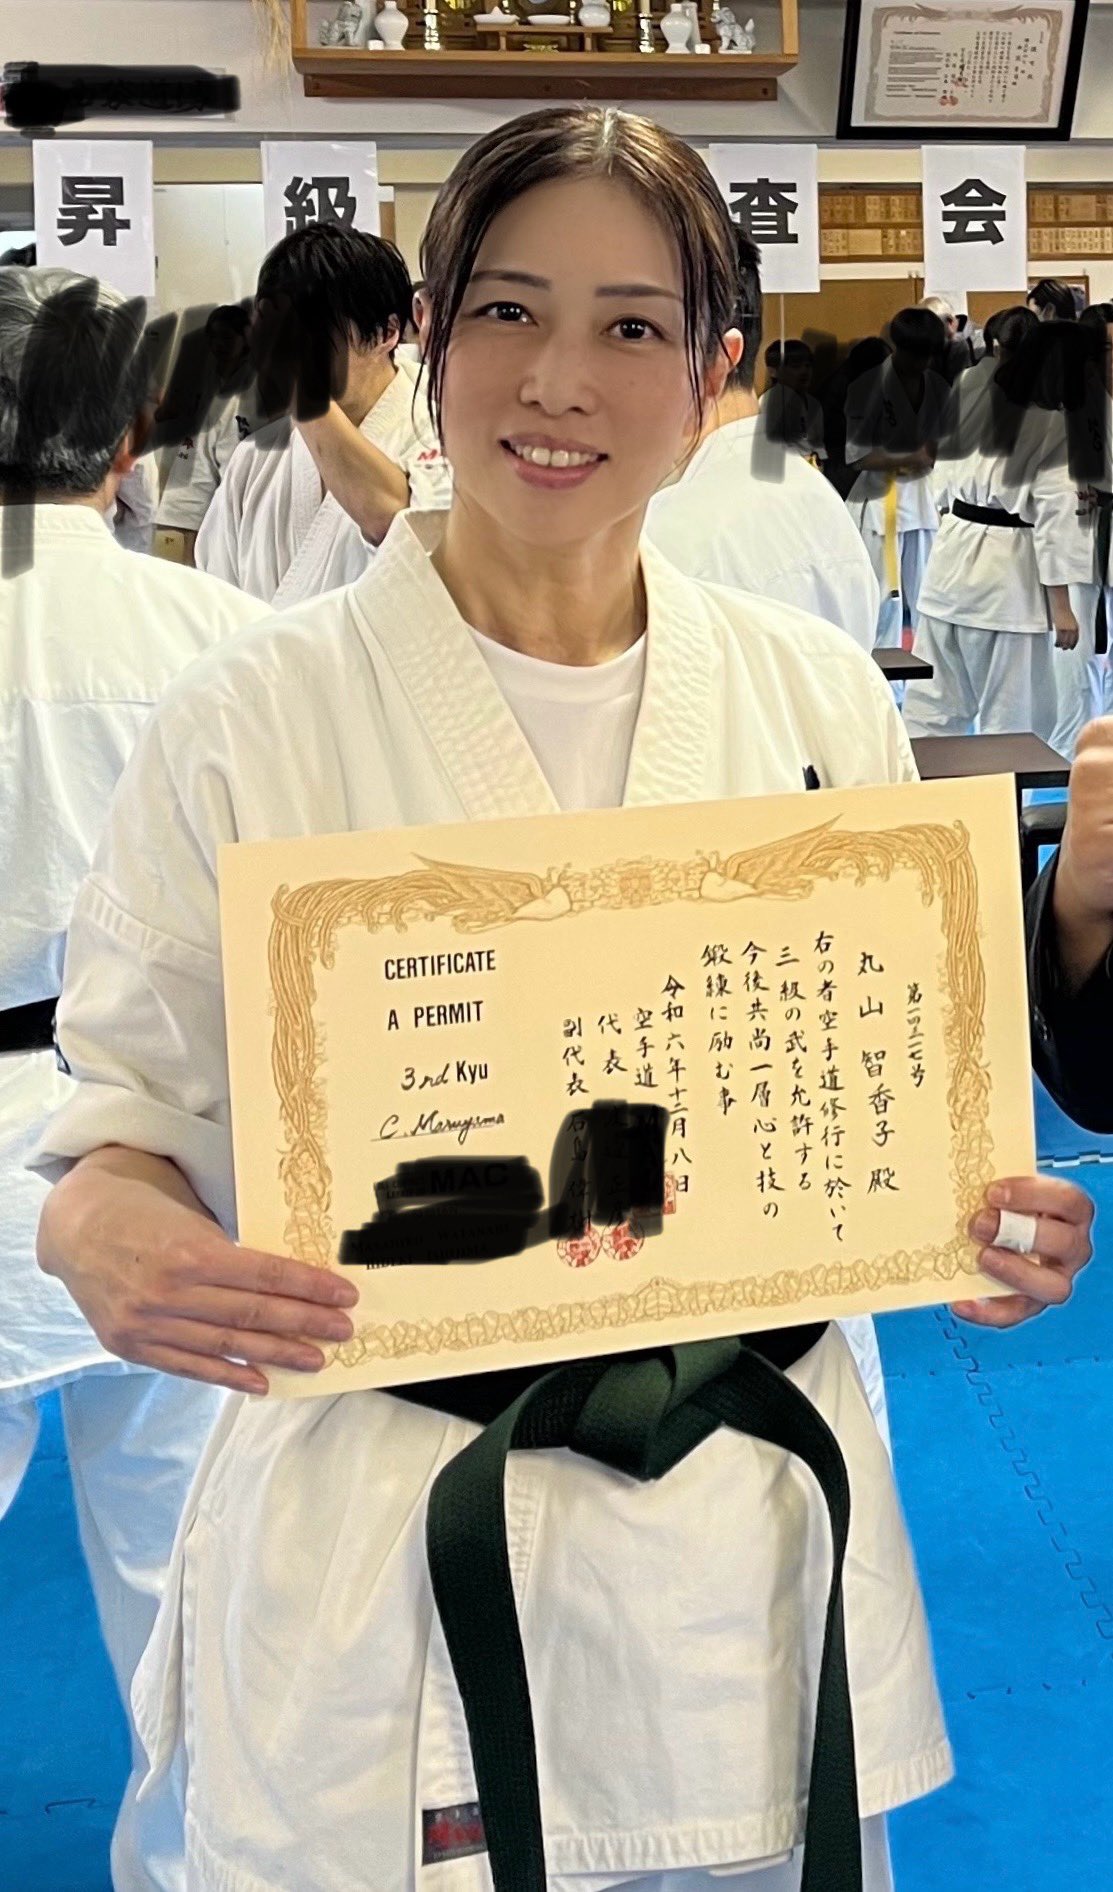 昇
級
査
会
第一四三一七号
丸山 智香子 殿
右の者空手道修行に於いて
三級の武を允許する
今後共尚一層心と技の
鍛練に励む事
令和六年十二月八日
空手道
代表
副代表
CERTIFICATE
A PERMIT
3rd Kyu
C. Maruyama
MAC